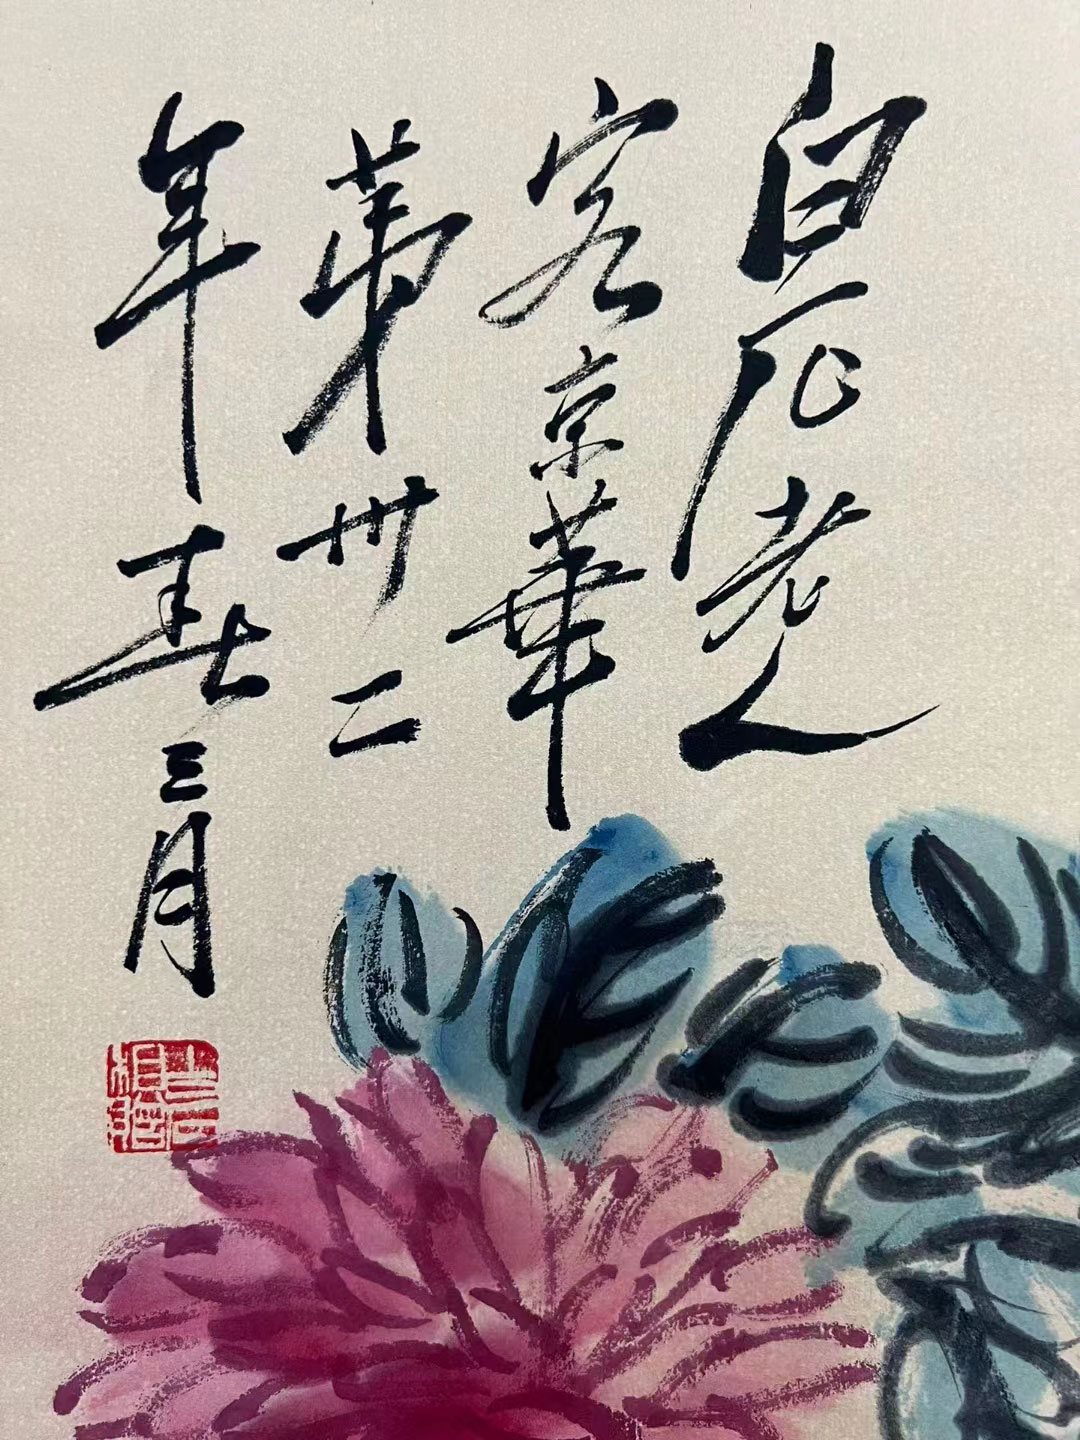 白石老人
客京華
第卅二
年春三月